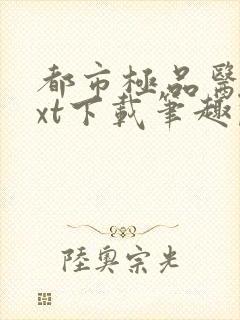 都市極品醫
xt下載筆趣
陸奧宗光